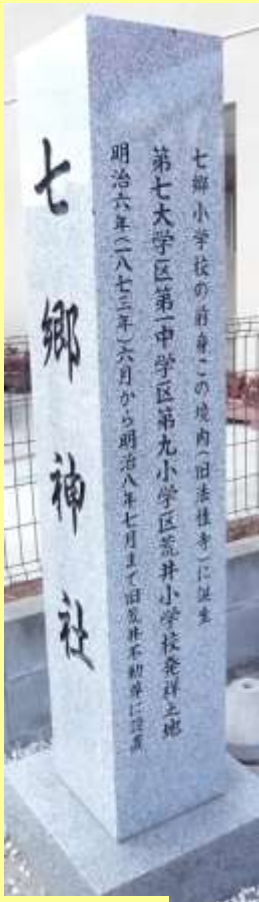 七郷神社
七郷小学校の前身この境内(旧法性寺)に誕生
第七大学区第一中学区第九小学区荒井小学校発祥之地
明治六年(一八七三年)六月から明治八年七月まで旧荒井不動尊に設置